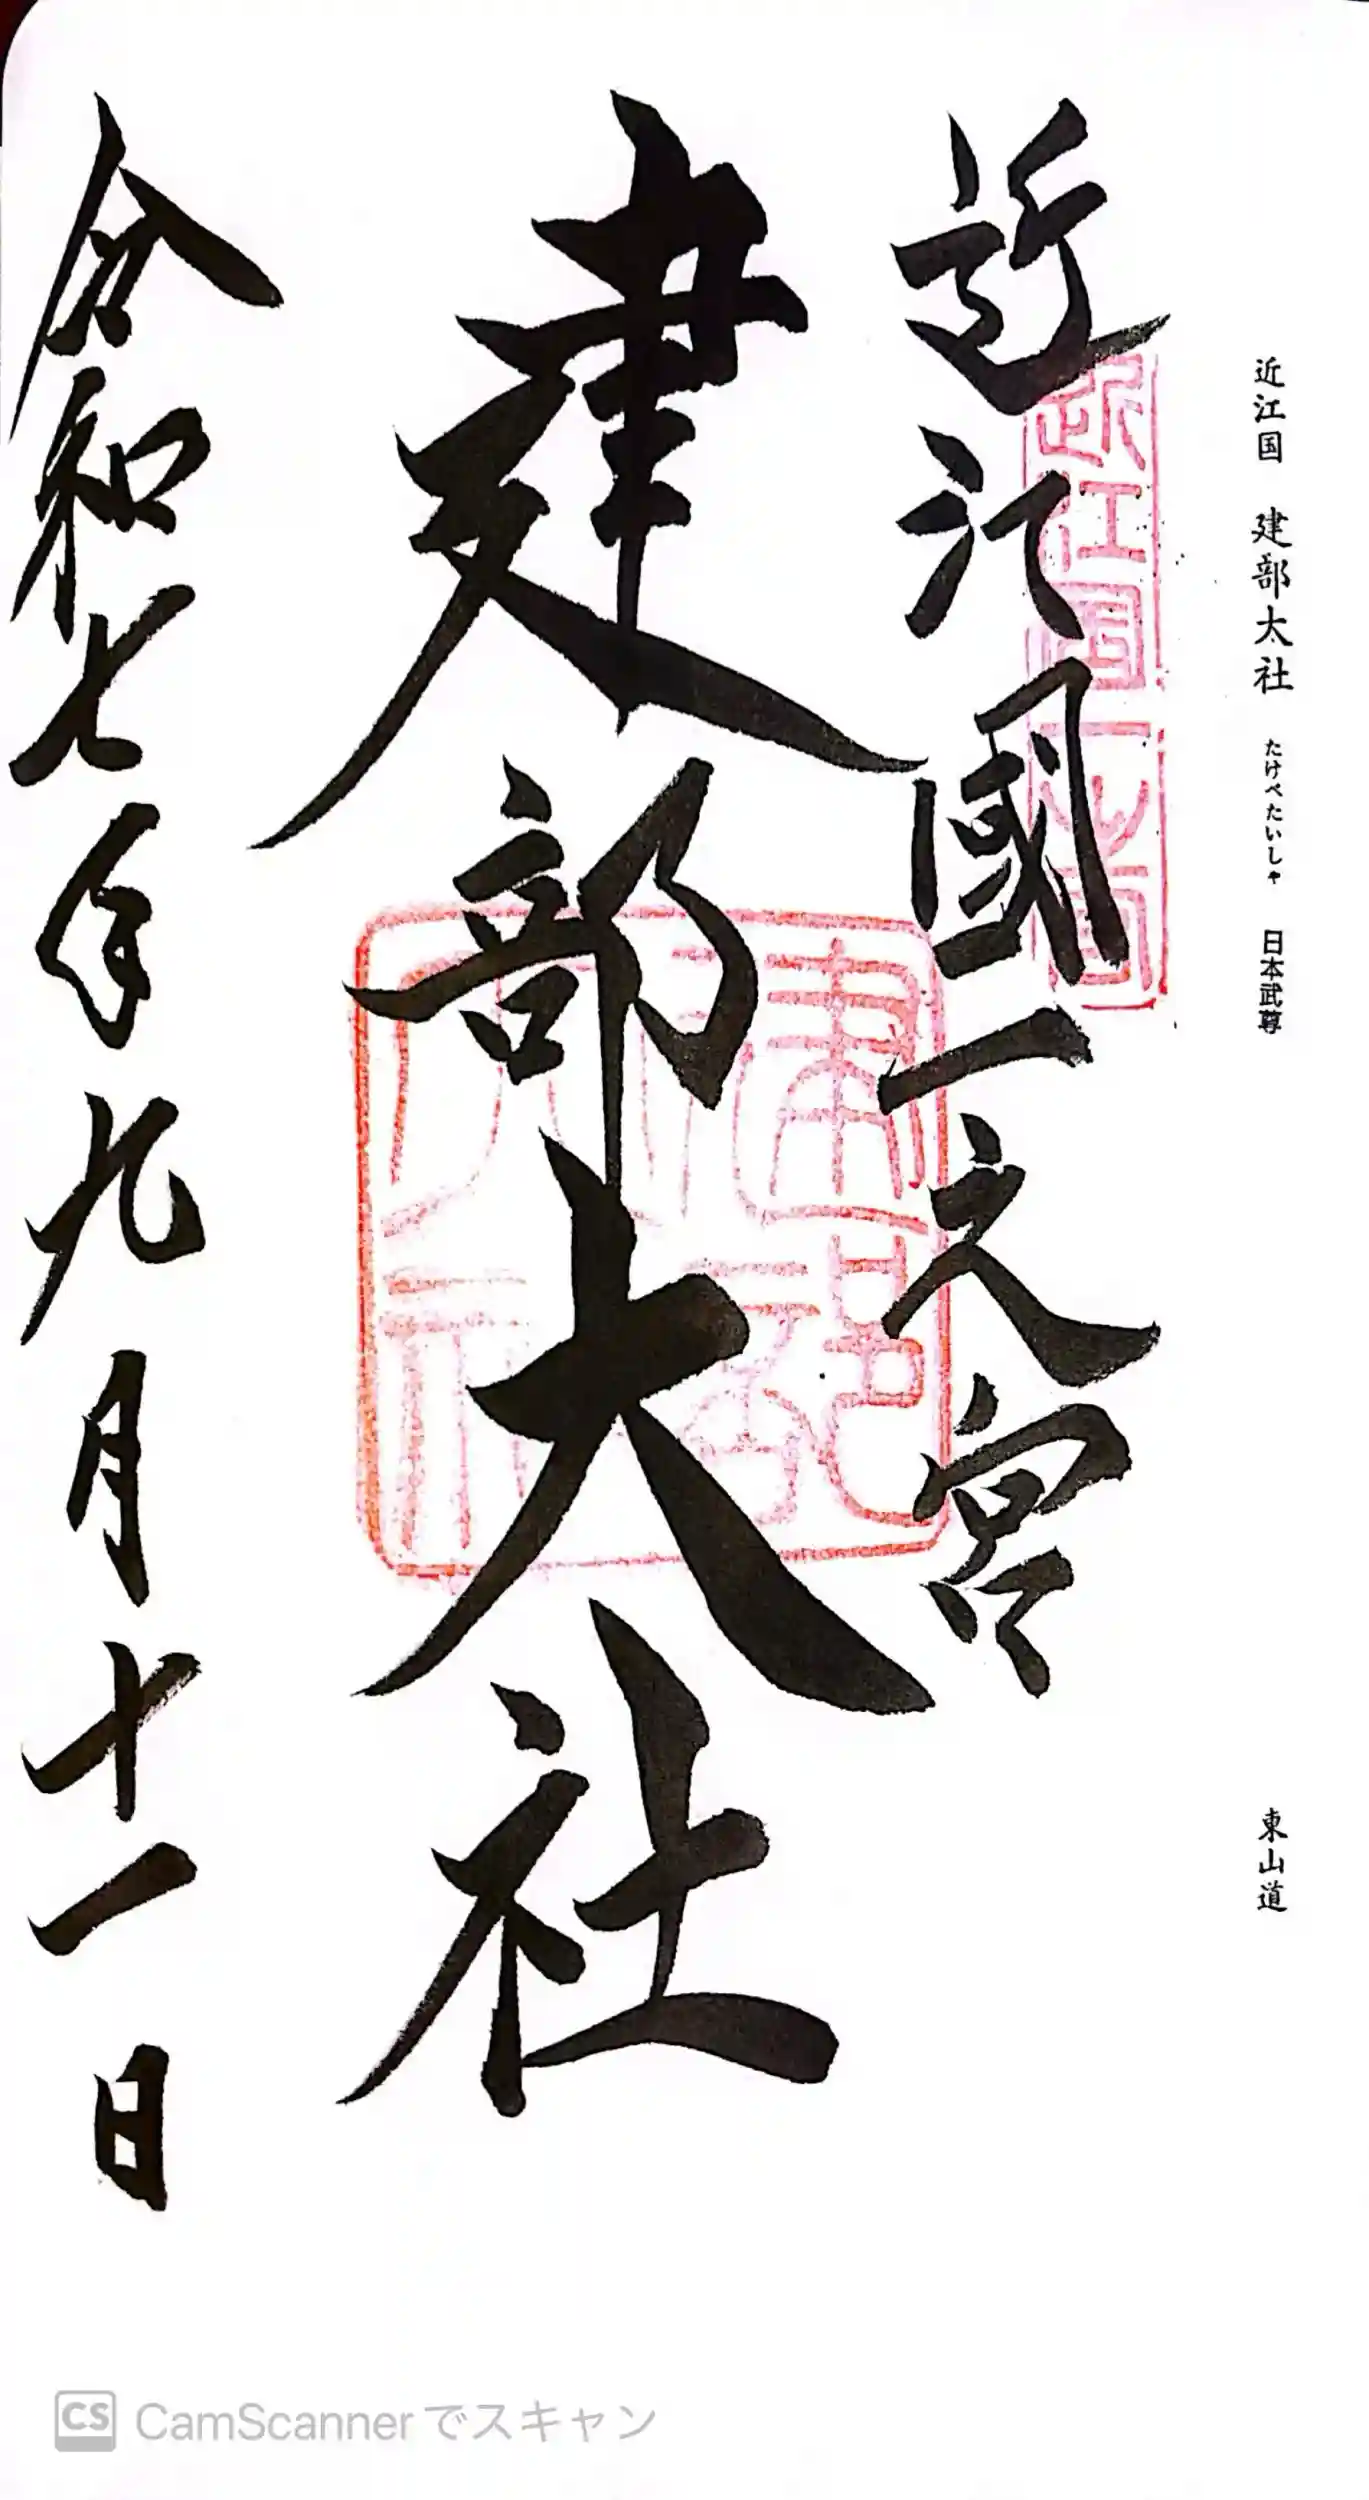 近江国 建部大社 たけべたいしゃ 日本武尊 東山道
近江國一之宮
近江国一之宮
建部大社
建部大社
令和七年九月十一日
CS CamScannerでスキャン